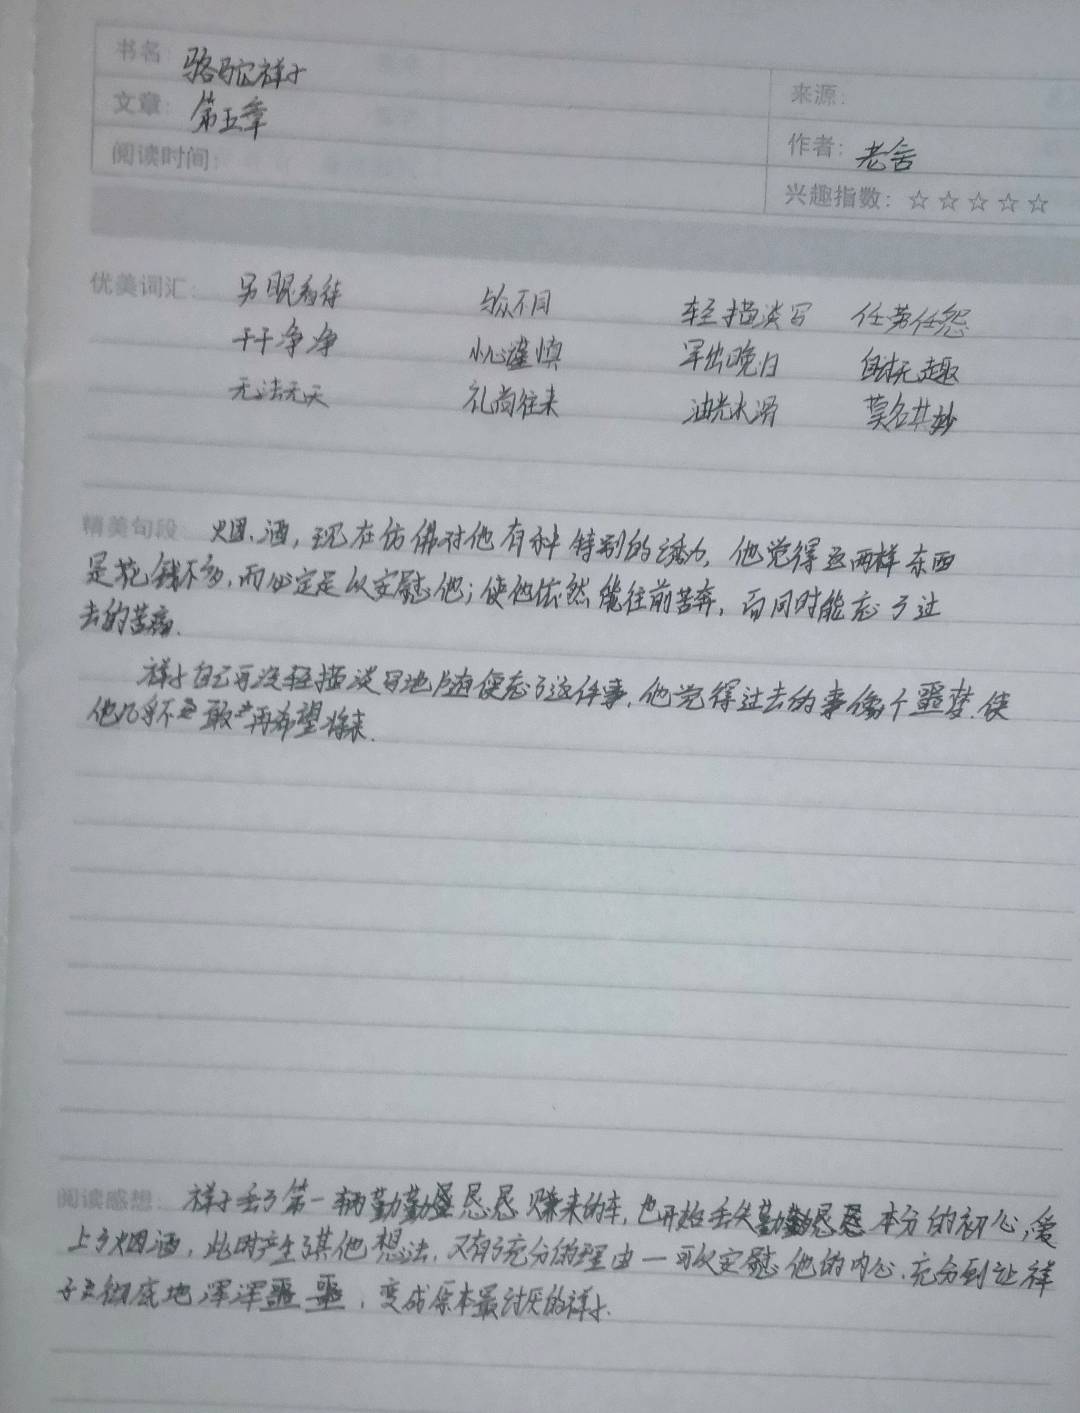 书名: 骆驼祥子
来源:
文章: 第五章
作者: 老舍
阅读时间:
兴趣指数: ☆☆☆☆☆
优美词汇: 另眼看待 与众不同 轻描淡写 任劳任怨
干干净净 小心谨慎 早出晚归 自讨无趣
无法无天 礼尚往来 油光水滑 莫名其妙
精美句段: 烟、酒,现在仿佛对他有种特别的诱力,他觉得这两样东西
是花钱不多,而必定足以安慰他;使他依然能往前苦奔,而同时能忘了过
去的苦痛.
祥子自己可没轻描淡写地随便忘了这件事,他觉得过去的事像个噩梦.使
他几乎不敢再希望将来.
阅读感想: 祥子丢了第一辆勤勤恳恳赚来的车,也开始丢失勤勤恳恳本分的初心,爱
上了烟酒,此时产生了其他想法,又有了充分的理由一可以安慰他的内心.充分到让祥
子彻底地浑浑噩噩,变成原本最讨厌的祥子.